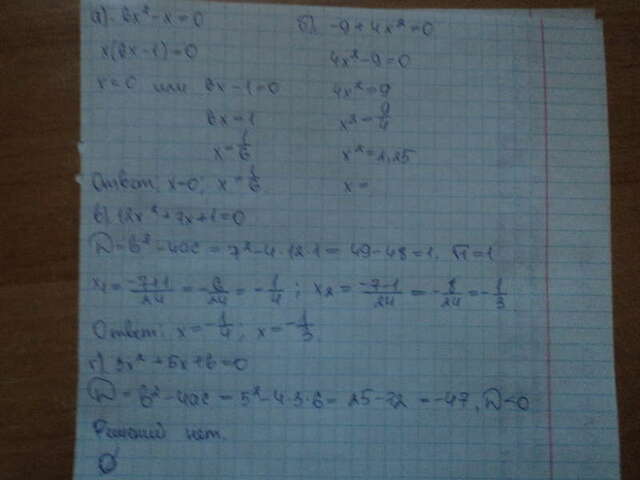 а) 6x²-x=0
x(6x-1)=0
x=0 или 6x-1=0
6x=1
x=1/6
Ответ: x=0; x=1/6.
б) -9+4x²=0
4x²-9=0
4x²=9
x²=9/4
x²=2,25
x=
в) 12x²+7x+1=0
D=b²-4ac=7²-4·12·1=49-48=1, √1=1
x1=-7+1/24=-6/24=-1/4; x2=-7-1/24=-8/24=-1/3.
Ответ: x=-1/4; x=-1/3.
г) 3x²+5x+6=0
D=b²-4ac=5²-4·3·6=25-72=-47, D<0
Решений нет.